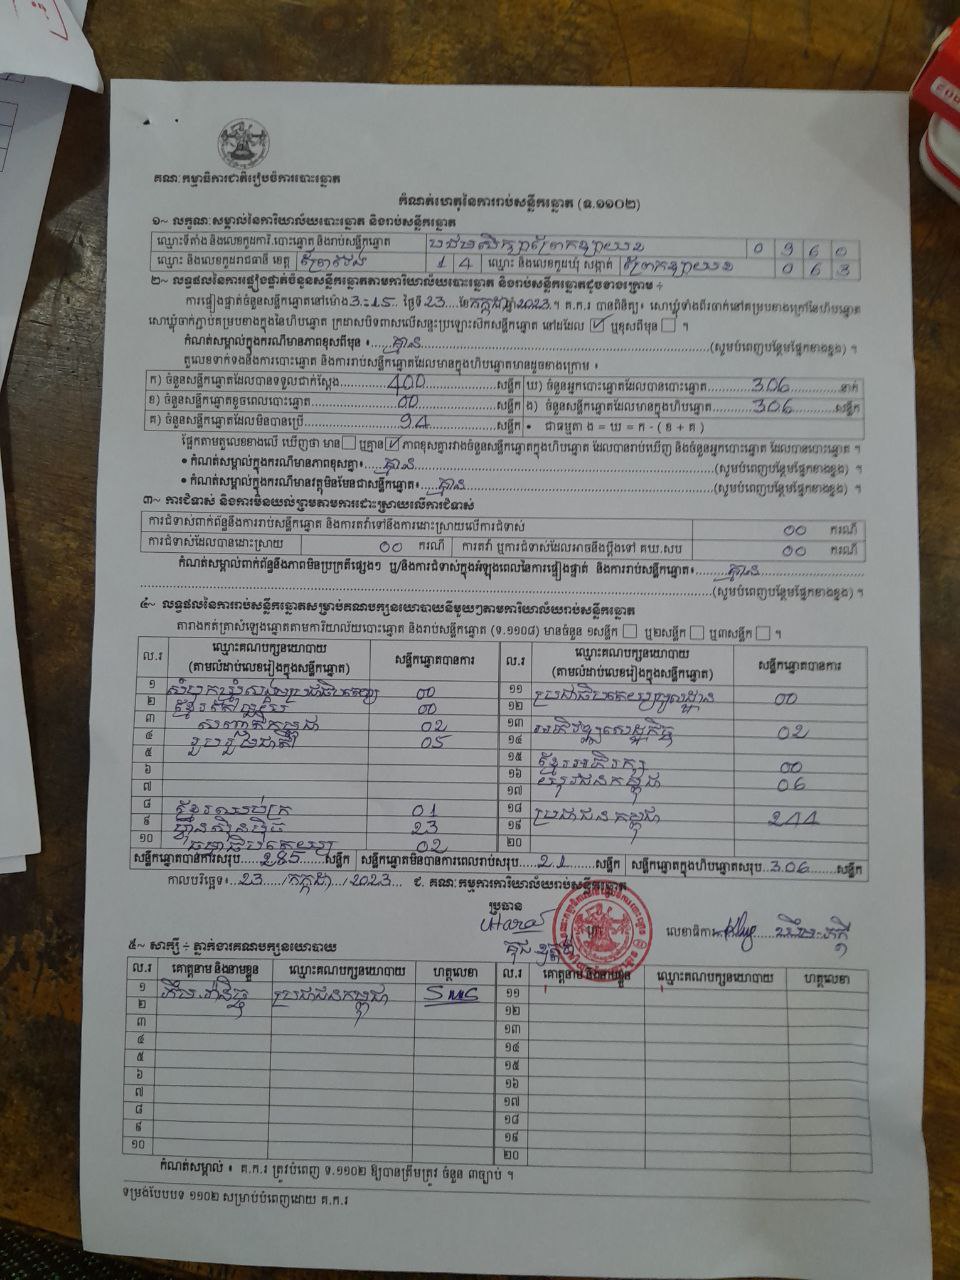 គណៈកម្មាធិការជាតិរៀបចំការបោះឆ្នោត
កំណត់ហេតុនៃការរាប់សន្លឹកឆ្នោត (ទ.១១០២)
១~ លក្ខណៈសម្គាល់នៃការិយាល័យបោះឆ្នោត និងរាប់សន្លឹកឆ្នោត
ឈ្មោះទីតាំង និងលេខកូដការិ.បោះឆ្នោត និងរាប់សន្លឹកឆ្នោត បឋមសិក្សាព្រែកខ្សាយខ 0 9 6 0
ឈ្មោះ និងលេខកូដរាជធានី ខេត្ត ព្រៃវែង 1 4 ឈ្មោះ និងលេខកូដឃុំ សង្កាត់ ព្រែកខ្សាយខ 0 6 3
២~ លទ្ធផលនៃការផ្ទៀងផ្ទាត់ចំនួនសន្លឹកឆ្នោតតាមការិយាល័យបោះឆ្នោត និងរាប់សន្លឹកឆ្នោតដូចខាងក្រោម ÷
ការផ្ទៀងផ្ទាត់ចំនួនសន្លឹកឆ្នោតនៅម៉ោង 3:15 ថ្ងៃទី 23 ខែ កក្កដា ឆ្នាំ 2023 ។ គ.ក.រ បានពិនិត្យ៖ សោឃ្លុំទាំងពីរចាក់នៅគម្របខាងក្រៅនៃហិបឆ្នោត
សោឃ្លុំចាក់ភ្ជាប់គម្របខាងក្នុងនៃហិបឆ្នោត ក្រដាសបិទពាសលើសន្ទះប្រឡោះស៊កសន្លឹកឆ្នោត នៅដដែល ☑ ឬខុសពីមុន ☐ ។
កំណត់សម្គាល់ក្នុងករណីមានភាពខុសពីមុន ៖ គ្មាន (សូមបំពេញបន្ថែមផ្នែកខាងខ្នង) ។
តួលេខទាក់ទងនឹងការបោះឆ្នោត និងការរាប់សន្លឹកឆ្នោតដែលមានក្នុងហិបឆ្នោតមានដូចខាងក្រោម ៖
ក) ចំនួនសន្លឹកឆ្នោតដែលបានទទួលជាក់ស្តែង 400 សន្លឹក ឃ) ចំនួនអ្នកបោះឆ្នោតដែលបានបោះឆ្នោត 306 នាក់
ខ) ចំនួនសន្លឹកឆ្នោតខូចពេលបោះឆ្នោត 00 សន្លឹក ង) ចំនួនសន្លឹកឆ្នោតដែលមានក្នុងហិបឆ្នោត 306 សន្លឹក
គ) ចំនួនសន្លឹកឆ្នោតដែលមិនបានប្រើ 94 សន្លឹក • ជាធម្មតា ង = ឃ = ក - ( ខ + គ )
ផ្អែកតាមតួលេខខាងលើ ឃើញថា មាន ☐ ឬគ្មាន ☑ ភាពខុសគ្នារវាងចំនួនសន្លឹកឆ្នោតក្នុងហិបឆ្នោត ដែលបានរាប់ឃើញ និងចំនួនអ្នកបោះឆ្នោត ដែលបានបោះឆ្នោត ។
• កំណត់សម្គាល់ក្នុងករណីមានភាពខុសគ្នា៖ គ្មាន (សូមបំពេញបន្ថែមផ្នែកខាងខ្នង) ។
• កំណត់សម្គាល់ក្នុងករណីមានវត្ថុមិនមែនជាសន្លឹកឆ្នោត៖ គ្មាន (សូមបំពេញបន្ថែមផ្នែកខាងខ្នង) ។
៣~ ការជំទាស់ និងការមិនយល់ព្រមតាមការដោះស្រាយលើការជំទាស់
ការជំទាស់ពាក់ព័ន្ធនឹងការរាប់សន្លឹកឆ្នោត និងការតវ៉ាទៅនឹងការដោះស្រាយលើការជំទាស់ 00 ករណី
ការជំទាស់ដែលបានដោះស្រាយ 00 ករណី ការតវ៉ា ឬការជំទាស់ដែលអាចនឹងប្តឹងទៅ គឃ.សប 00 ករណី
កំណត់សម្គាល់ពាក់ព័ន្ធនឹងភាពមិនប្រក្រតីផ្សេងៗ ឬ/និងការជំទាស់ក្នុងអំឡុងពេលនៃការផ្ទៀងផ្ទាត់ និងការរាប់សន្លឹកឆ្នោត៖ គ្មាន
(សូមបំពេញបន្ថែមផ្នែកខាងខ្នង) ។
៤~ លទ្ធផលនៃការរាប់សន្លឹកឆ្នោតសម្រាប់គណបក្សនយោបាយនីមួយៗតាមការិយាល័យរាប់សន្លឹកឆ្នោត
តារាងកត់ត្រាសំឡេងឆ្នោតតាមការិយាល័យបោះឆ្នោត និងរាប់សន្លឹកឆ្នោត (ទ.១១០៨) មានចំនួន ១សន្លឹក ☐ ឬ២សន្លឹក ☐ ឬ៣សន្លឹក ☐ ។
ល.រ ឈ្មោះគណបក្សនយោបាយ (តាមលំដាប់លេខរៀងក្នុងសន្លឹកឆ្នោត) សន្លឹកឆ្នោតបានការ ល.រ ឈ្មោះគណបក្សនយោបាយ (តាមលំដាប់លេខរៀងក្នុងសន្លឹកឆ្នោត) សន្លឹកឆ្នោតបានការ
១ សំបុកឃ្មុំសង្គមប្រជាធិបតេយ្យ 00 ១១ ប្រជាធិបតេយ្យមូលដ្ឋាន 00
២ ខ្មែរ 00 ១២
៣ សញ្ជាតិកម្ពុជា 02 ១៣ អភិវឌ្ឍសេដ្ឋកិច្ច 02
៤ រួបរួមជាតិ 05 ១៤
៥ ១៥ ខ្មែរអភិរក្ស 00
៦ ១៦ យុវជនកម្ពុជា 06
៧ ១៧
៨ ខ្មែរឈប់ក្រ 01 ១៨ ប្រជាជនកម្ពុជា 244
៩ ហ្វ៊ុនស៊ិនប៉ិច 23 ១៩
១០ ធម្មាធិបតេយ្យ 02 ២០
សន្លឹកឆ្នោតបានការសរុប 285 សន្លឹក សន្លឹកឆ្នោតមិនបានការពេលរាប់សរុប 21 សន្លឹក សន្លឹកឆ្នោតក្នុងហិបឆ្នោតសរុប 306 សន្លឹក
កាលបរិច្ឆេទ៖ 23 / កក្កដា / 2023 ជ. គណៈកម្មការការិយាល័យរាប់សន្លឹកឆ្នោត
ប្រធាន
លេខាធិការ
៥~ សាក្សី ÷ ភ្នាក់ងារគណបក្សនយោបាយ
ល.រ គោត្តនាម និងនាមខ្លួន ឈ្មោះគណបក្សនយោបាយ ហត្ថលេខា ល.រ គោត្តនាម និងនាមខ្លួន ឈ្មោះគណបក្សនយោបាយ ហត្ថលេខា
១ ប្រជាជនកម្ពុជា ១១
២ ១២
៣ ១៣
៤ ១៤
៥ ១៥
៦ ១៦
៧ ១៧
៨ ១៨
៩ ១៩
១០ ២០
កំណត់សម្គាល់ ៖ គ.ក.រ ត្រូវបំពេញ ទ.១១០២ ឱ្យបានត្រឹមត្រូវ ចំនួន ៣ច្បាប់ ។
ទម្រង់បែបបទ ១១០២ សម្រាប់បំពេញដោយ គ.ក.រ